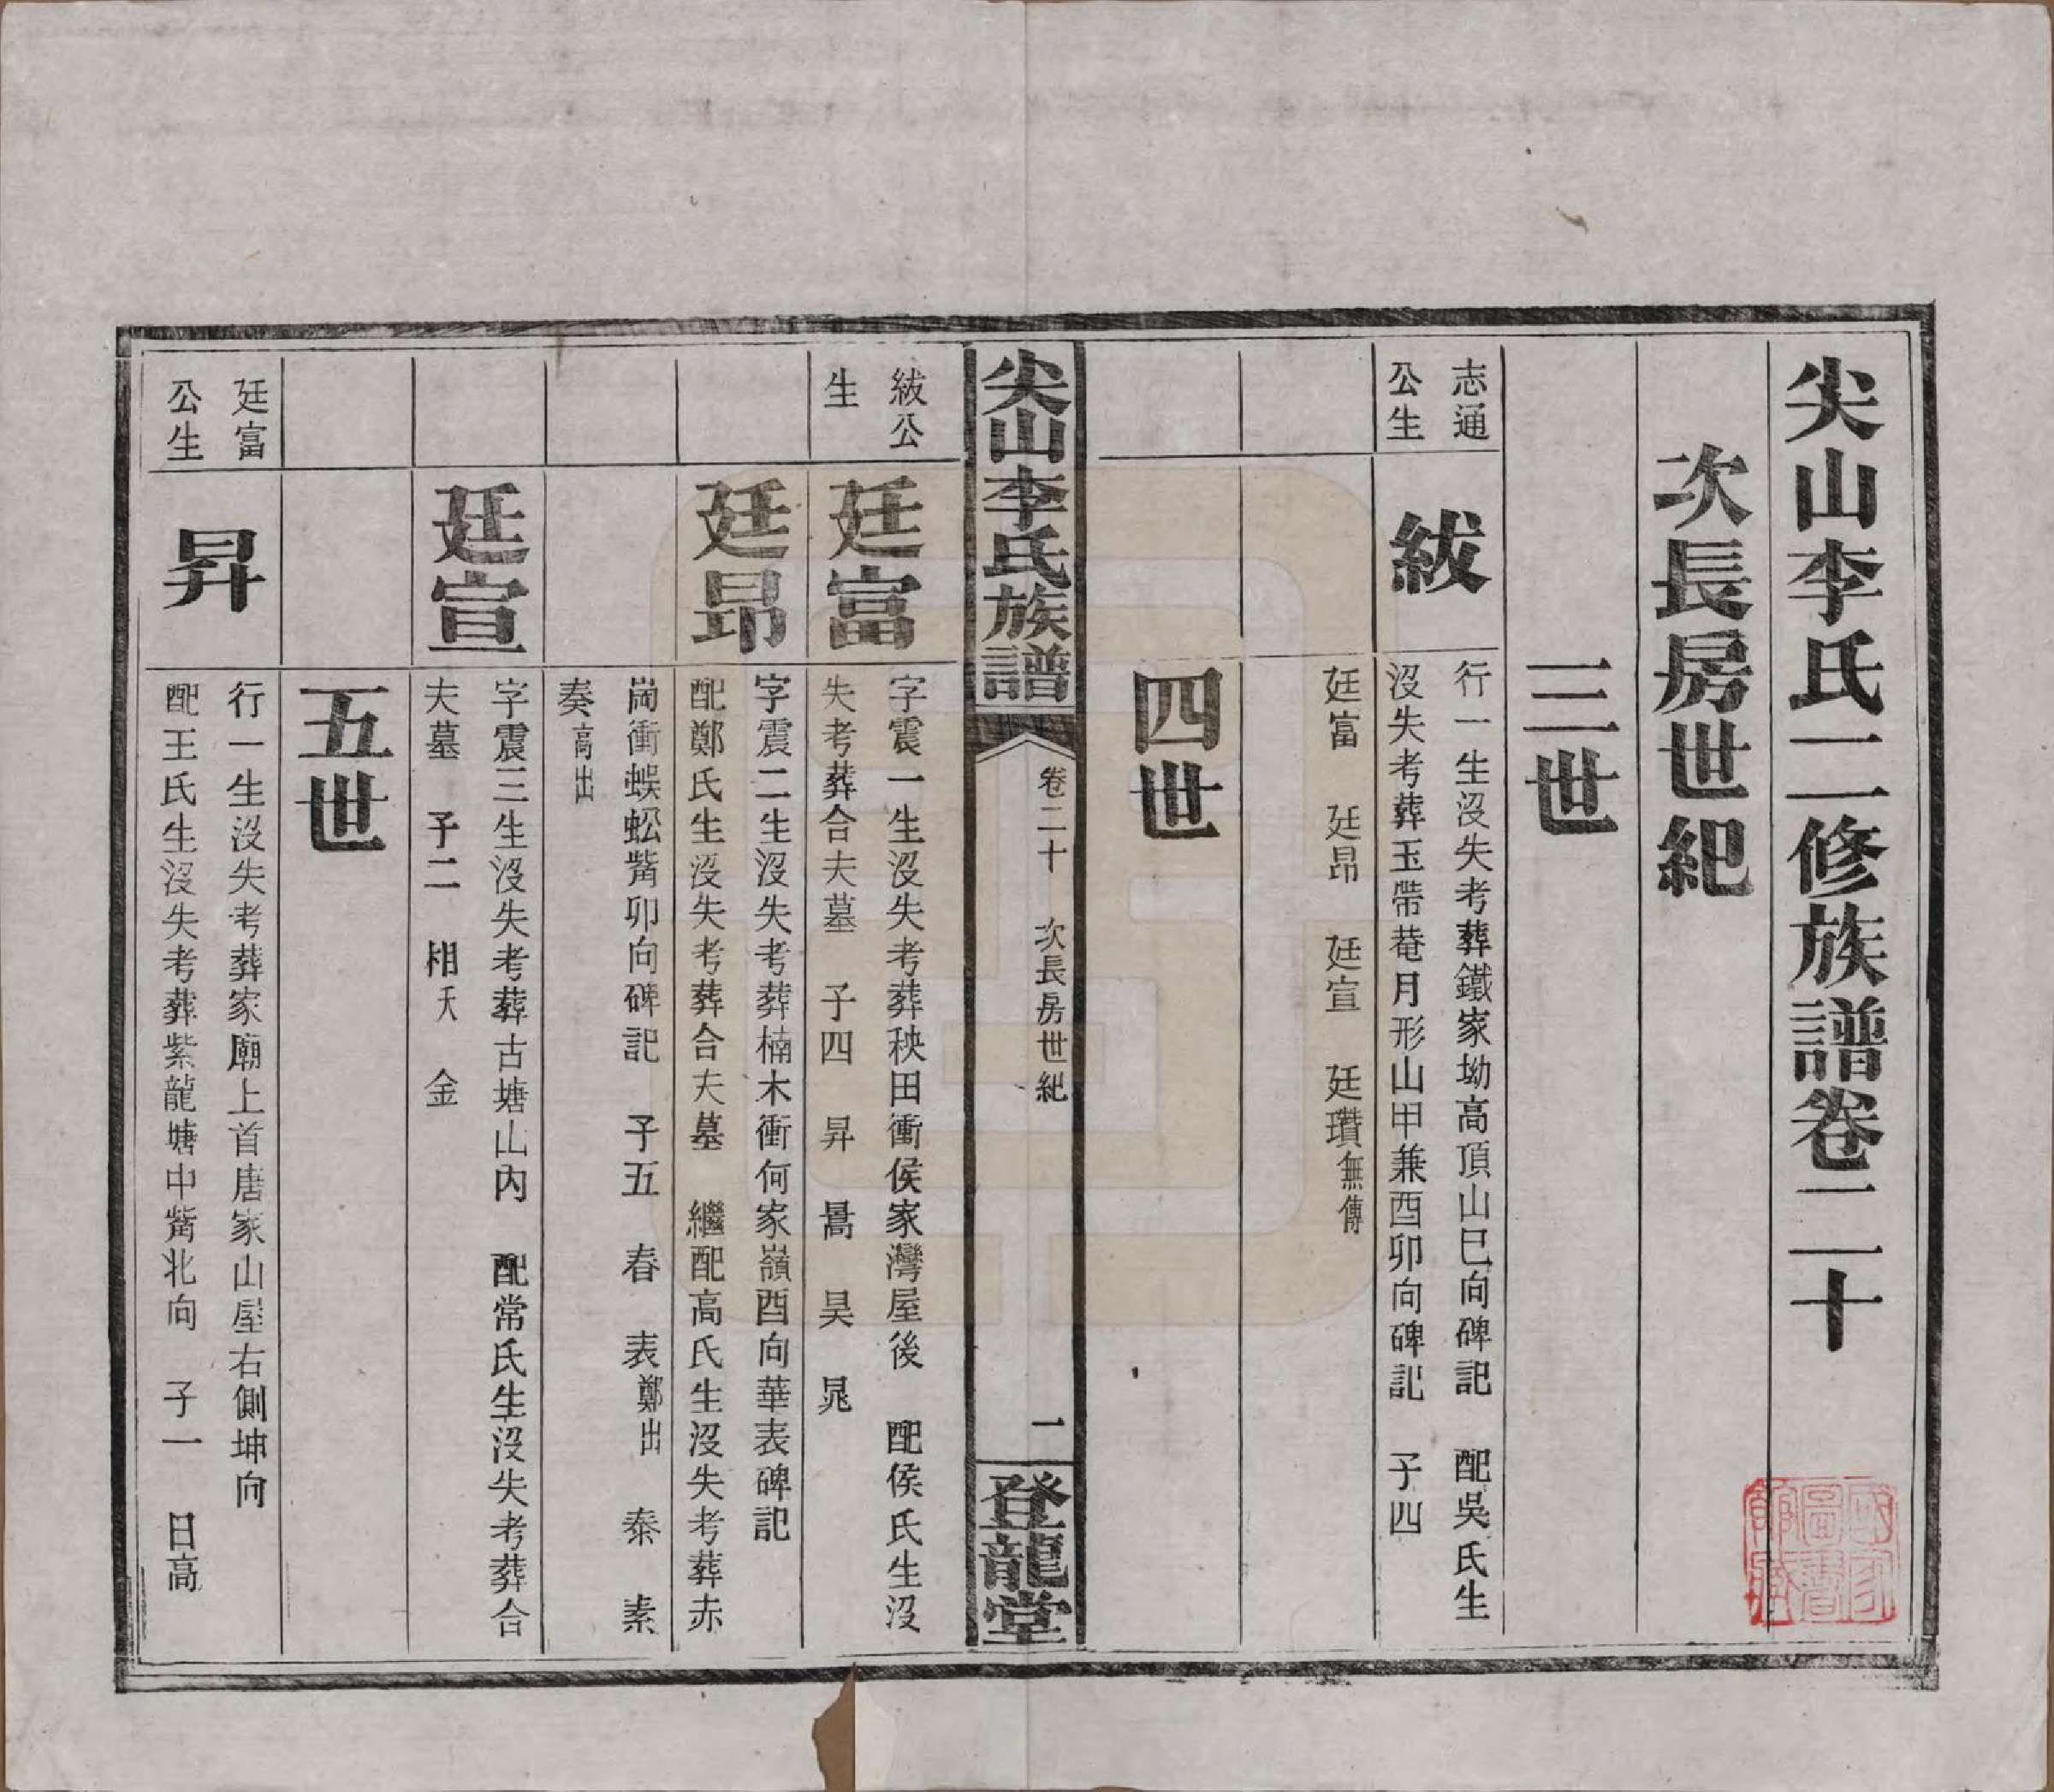 尖山李氏二修族譜卷二十
次長房世紀
三世
志通
公生
紱
行一生沒失考葬鐵家坳高頂山巳向碑記　配吳氏生
沒失考葬玉帶菴月形山甲兼酉卯向碑記　子四
廷富　廷昂　廷宣　廷瓚無傳
四世
尖山李氏族譜
卷二十　次長房世紀
一
登龍堂
紱公
生
廷富
字震一生沒失考葬秧田衝侯家灣屋後　配侯氏生沒
失考葬合夫墓　子四　昇　暠　昊　晃
廷昂
字震二生沒失考葬楠木衝何家嶺酉向華表碑記
配鄭氏生沒失考葬合夫墓　繼配高氏生沒失考葬赤
崗衝蜈蚣觜卯向碑記　子五　春　表鄭出　泰　素
奏高出
廷宣
字震三生沒失考葬古塘山內　配常氏生沒失考葬合
夫墓　子二　相夭　金
五世
廷富
公生
昇
行一生沒失考葬家廟上首唐家山屋右側坤向
配王氏生沒失考葬紫龍塘中觜北向　子一　日高
國家圖書館藏